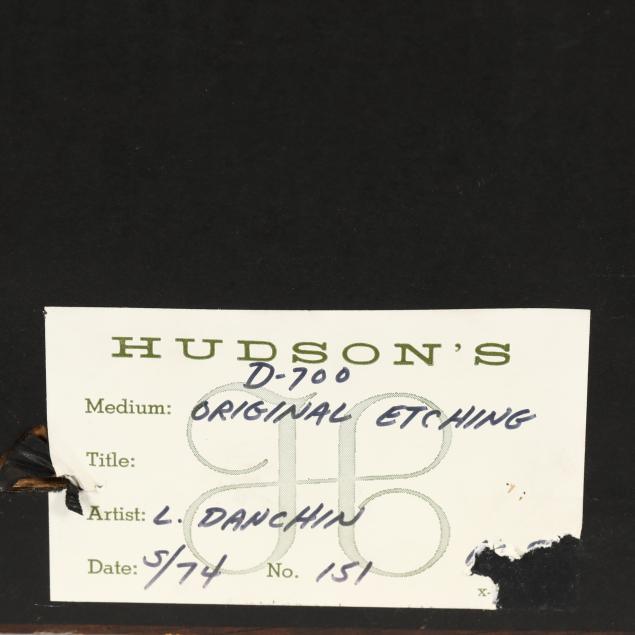 HUDSON'S
D-700
Medium: ORIGINAL ETCHING
Title:
Artist: L. DANCHIN
Date: 5/74 No. 151
X-